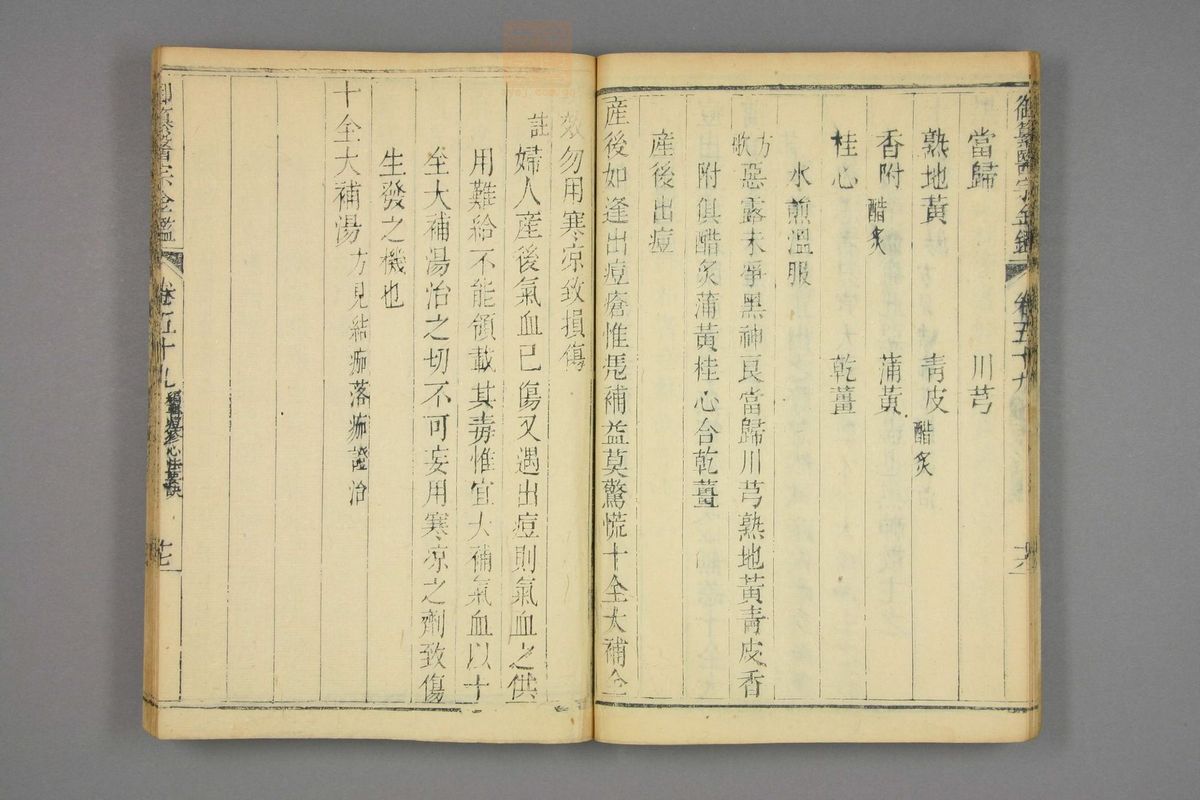 御纂醫宗金鑑 卷五十九
當歸 川芎
熟地黃 靑皮醋炙
香附醋炙 蒲黃
桂心 乾薑
水煎溫服
方歌 惡露未淨黑神良當歸川芎熟地黃靑皮香
附俱醋炙蒲黃桂心合乾薑
産後出痘
産後如逢出痘瘡惟慿補益莫驚慌十全大補全
效勿用寒凉致損傷
註 婦人産後氣血已傷又遇出痘則氣血之供
用難給不能領載其毒惟宜大補氣血以十
全大補湯治之切不可妄用寒凉之劑致傷
生發之機也
十全大補湯 方見結痂落痂證治
醫宗金鑑 卷五十九 痘疹心法要訣 十七